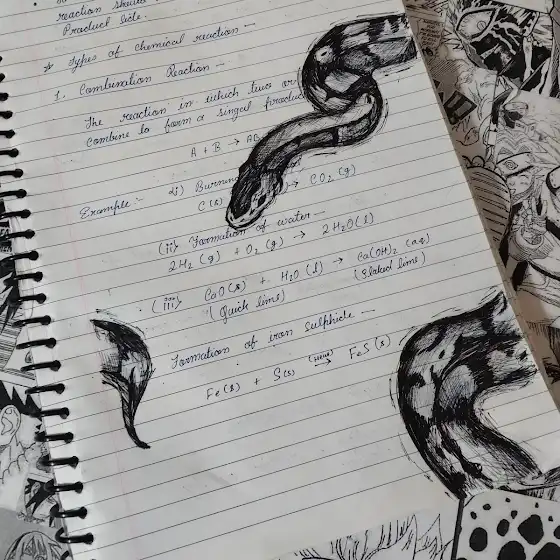 reaction should
Product side.
* Types of chemical reaction -
1. Combination Reaction -
The reaction in which two or
combine to form a singel product
A + B → AB
Example :- i) Burning
C(s) → CO2 (g)
(ii) Formation of water -
2H2 (g) + O2 (g) → 2H2O (l)
(iii) CaO(s) + H2O (l) → Ca(OH)2 (aq)
(Quick lime) (Slaked lime)
Formation of iron sulphide -
Fe(s) + S(s) → FeS(s)